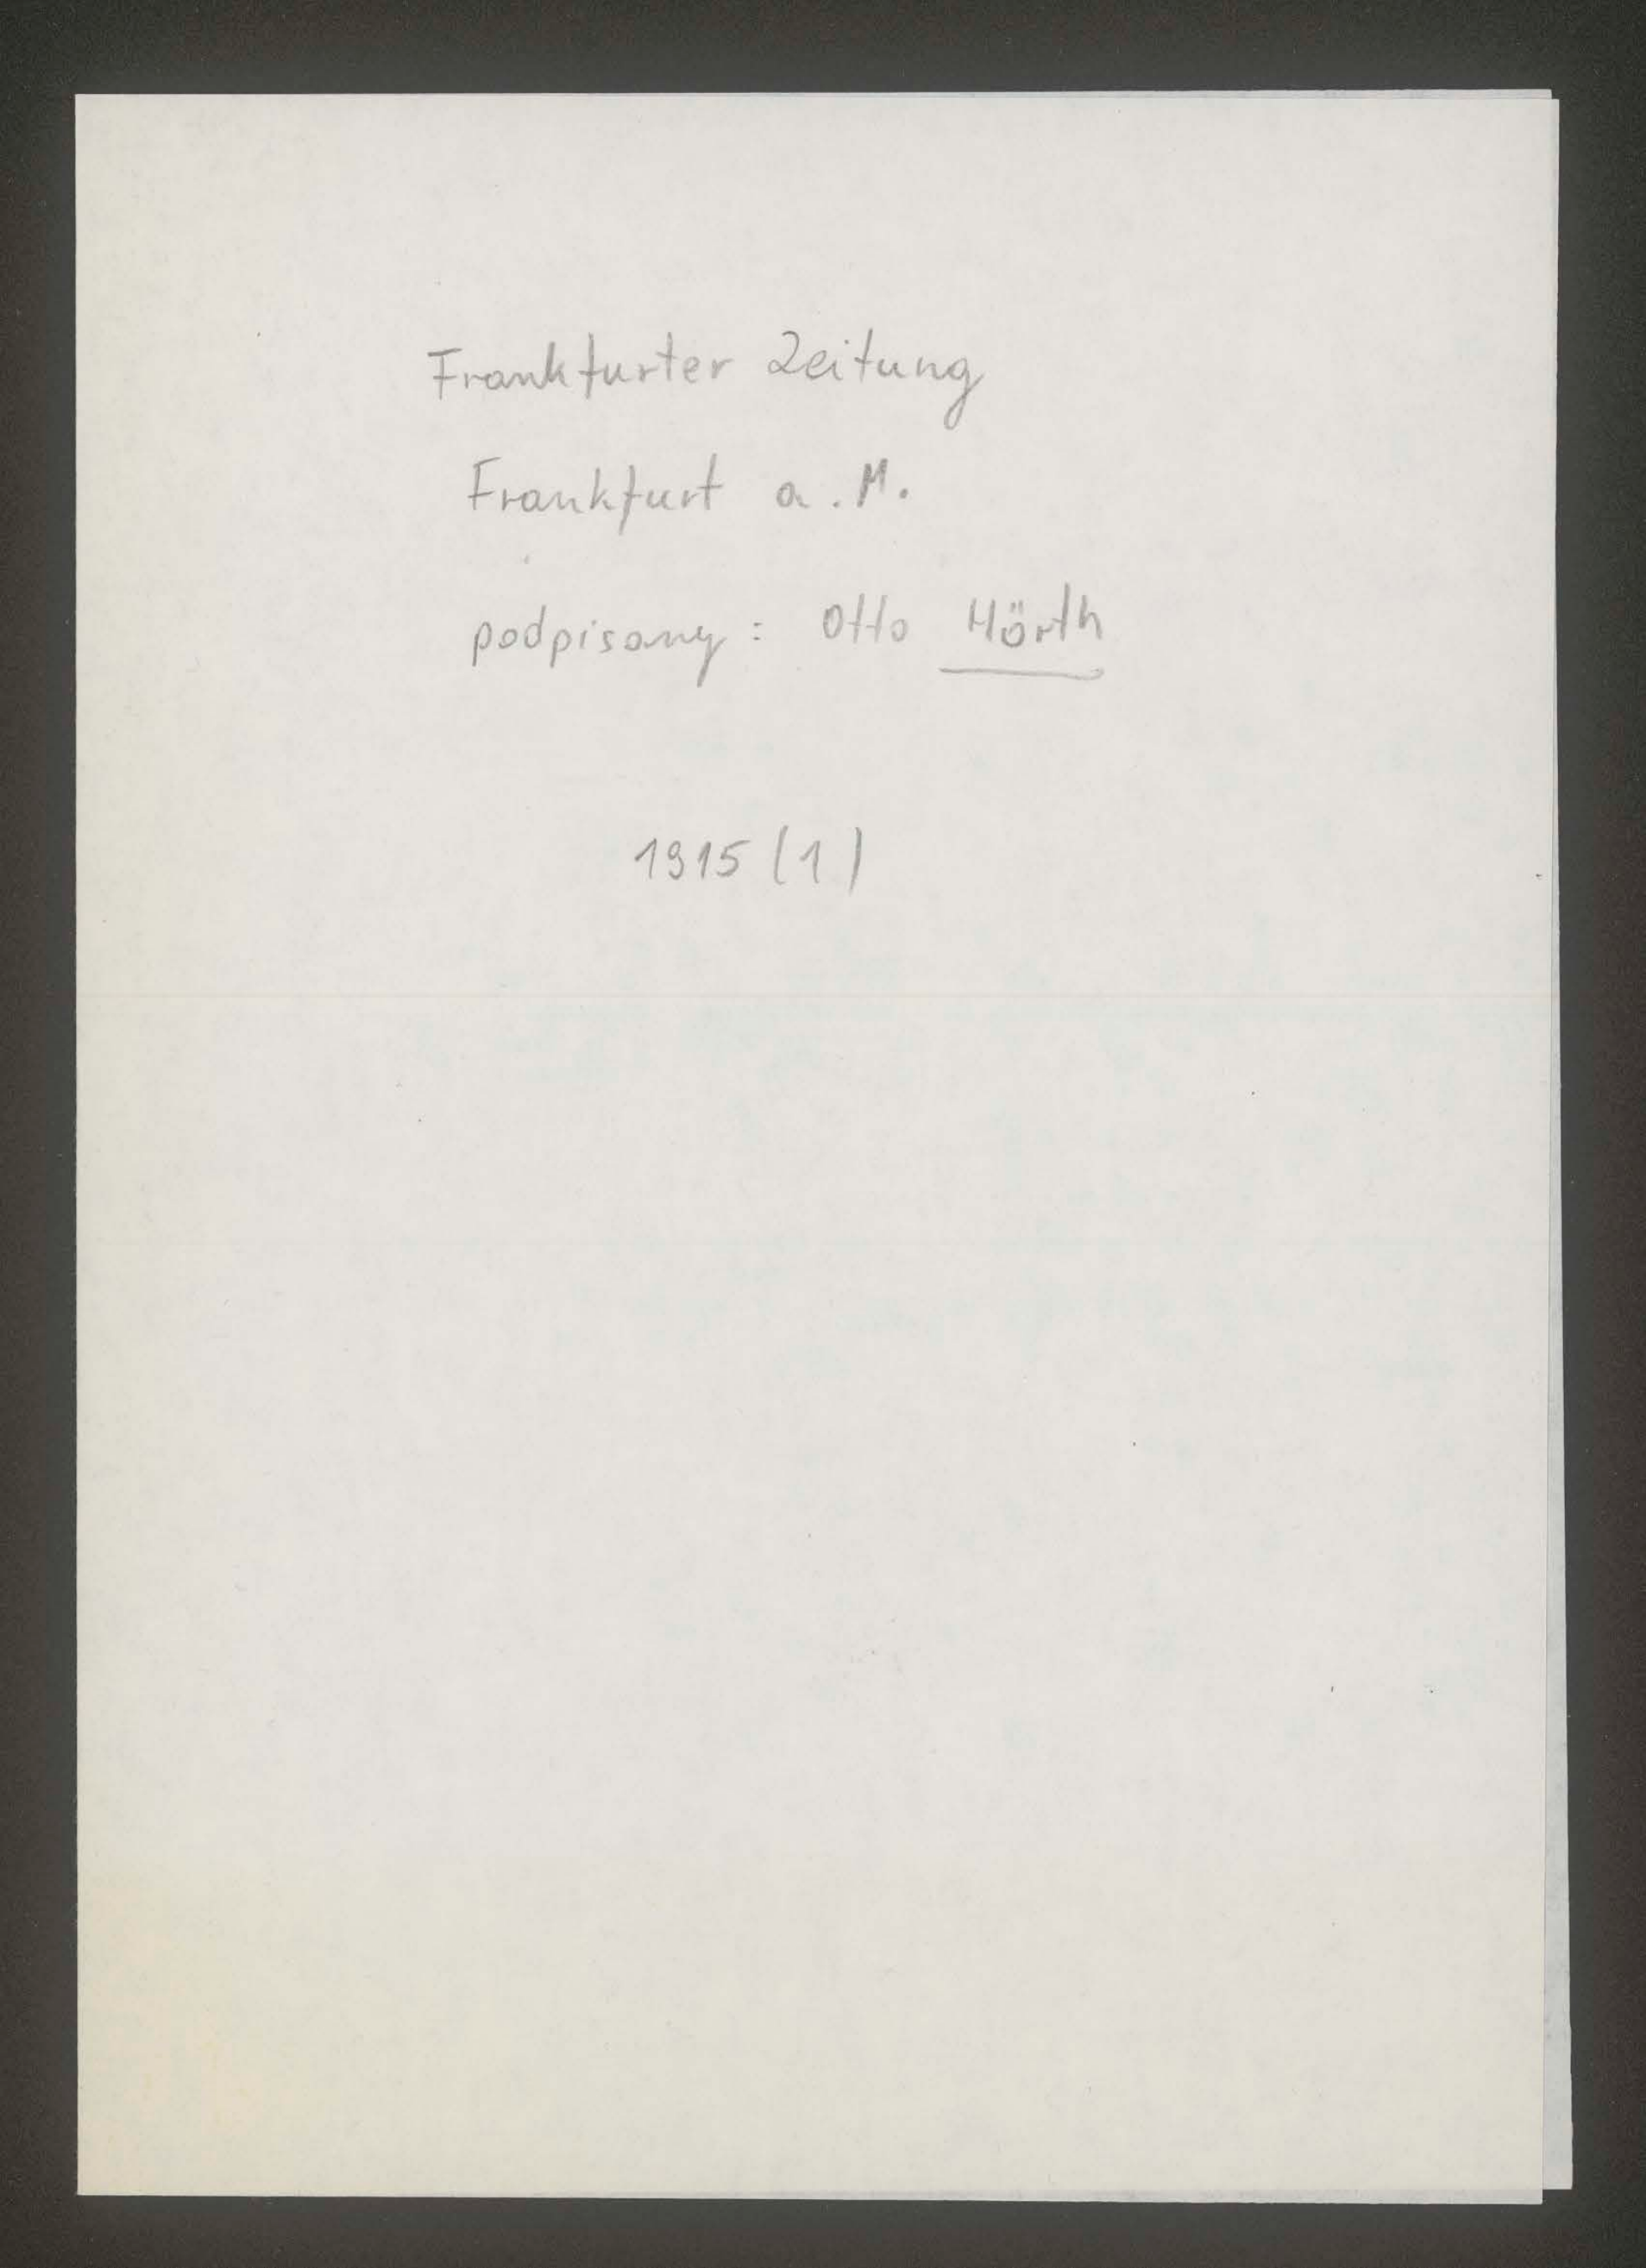 Frankfurter Zeitung
Frankfurt a. M.
podpisany: Otto Hörth
1915 (1)